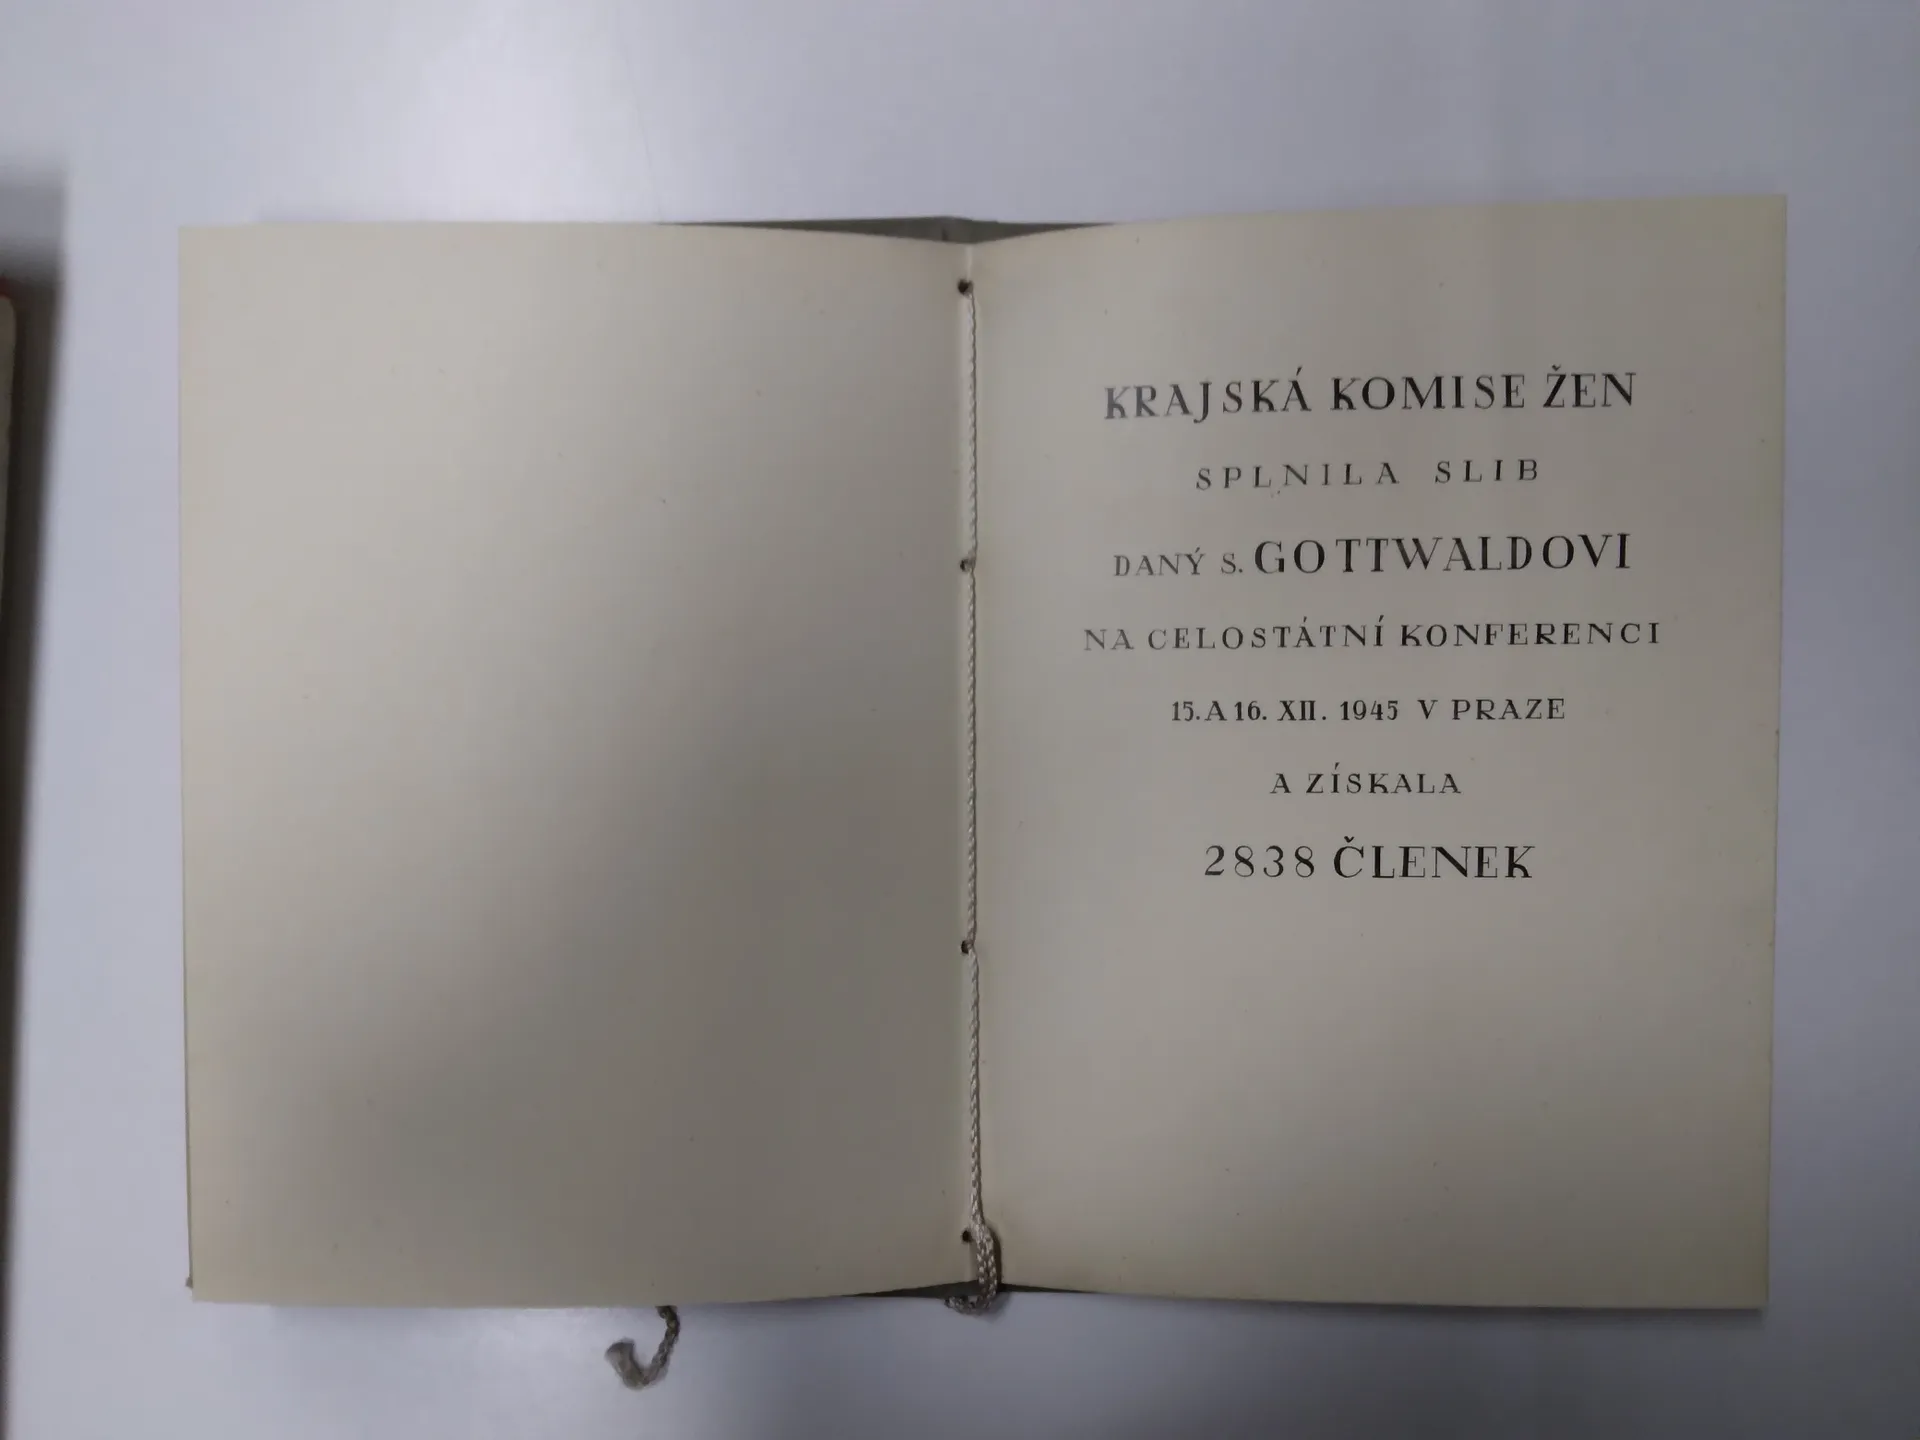 KRAJSKÁ KOMISE ŽEN
SPLNILA SLIB
DANÝ S. GOTTWALDOVI
NA CELOSTÁTNÍ KONFERENCI
15. A 16. XII. 1945 V PRAZE
A ZÍSKALA
2838 ČLENEK